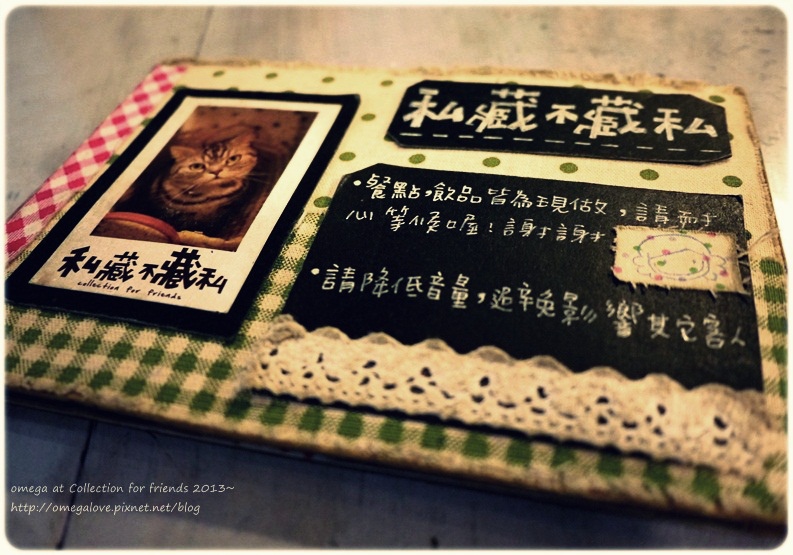 私藏不藏私
私藏不藏私
collection for friends
•餐點,飲品皆為現做,請耐
心等候喔!謝謝
•請降低音量,避免影響其它客人
omega at Collection for friends 2013~
http://omegalove.pixnet.net/blog